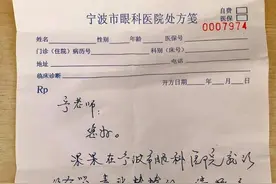 宁波市眼科医院处方笺
自费
医保
0007974
姓名 性别 年龄 医保号
门诊(住院)病历号 科别(床号)
地址 电话
临床诊断 开方日期 年 月 日
Rp
老师:
您好。
果果在宁波市眼科医院